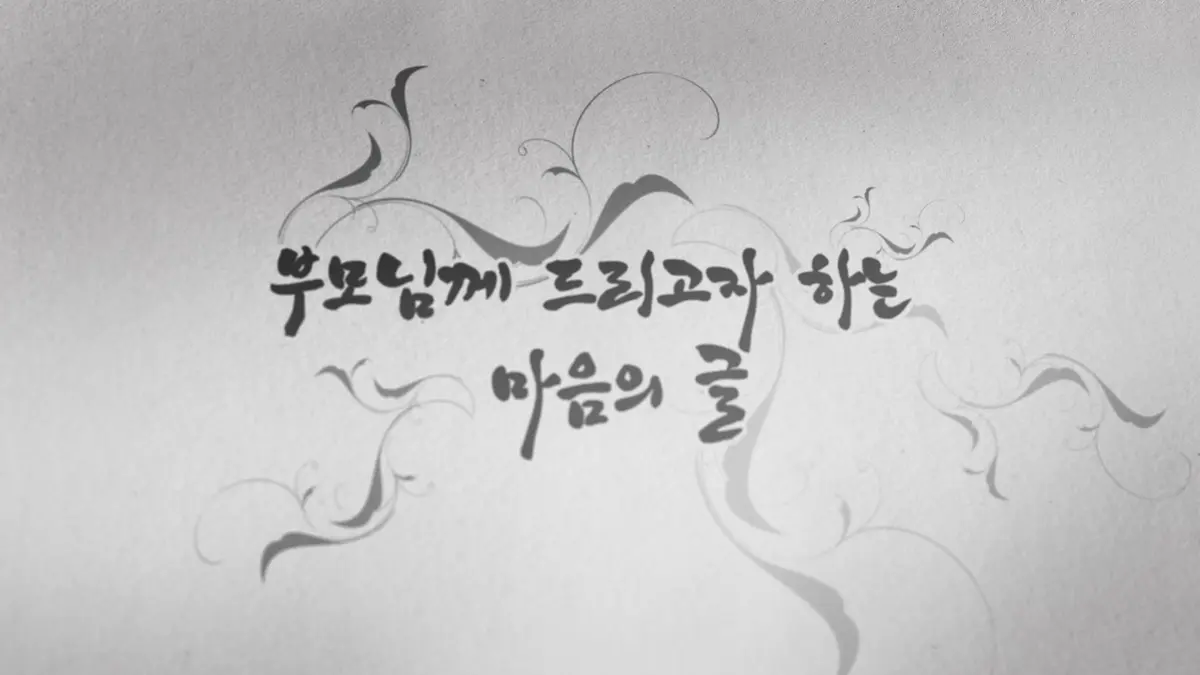 부모님께 드리고자 하는
마음의 글